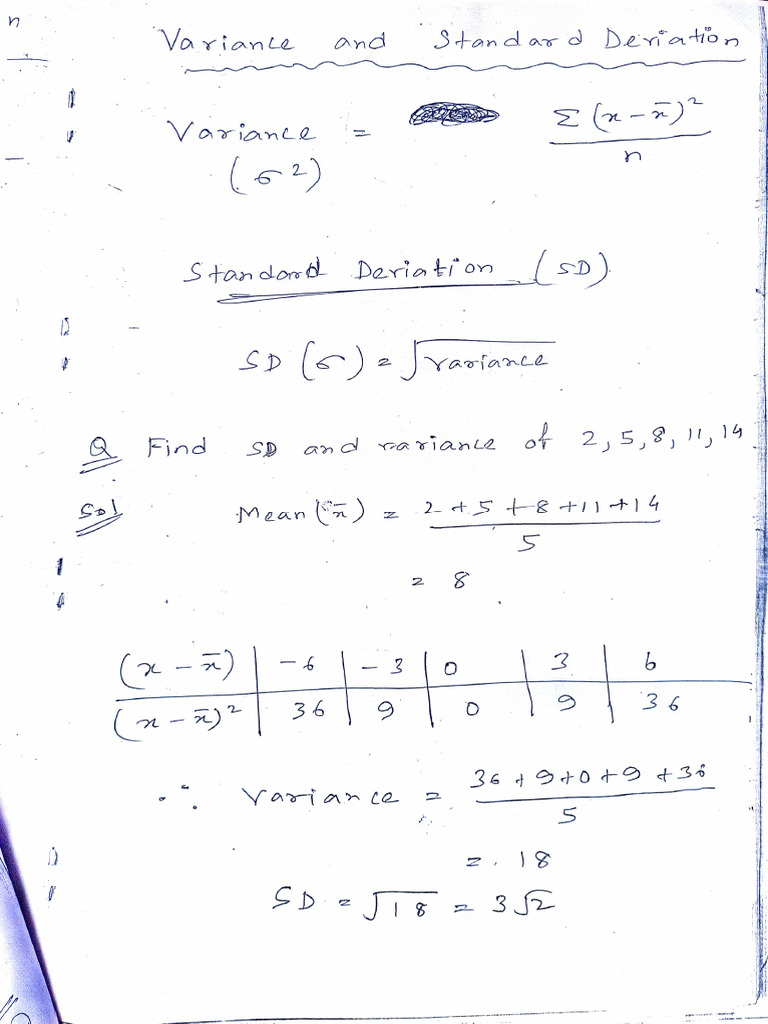 n
Variance and Standard Deviation
Variance = Σ(x-x̄)²/n
(σ²)
Standard Deviation (SD)
SD (σ) = √variance
Q Find SD and variance of 2, 5, 8, 11, 14
Sol Mean (x̄) = 2+5+8+11+14/5
= 8
(x-x̄) | -6 | -3 | 0 | 3 | 6
(x-x̄)² | 36 | 9 | 0 | 9 | 36
∴ Variance = 36+9+0+9+36/5
= 18
SD = √18 = 3√2